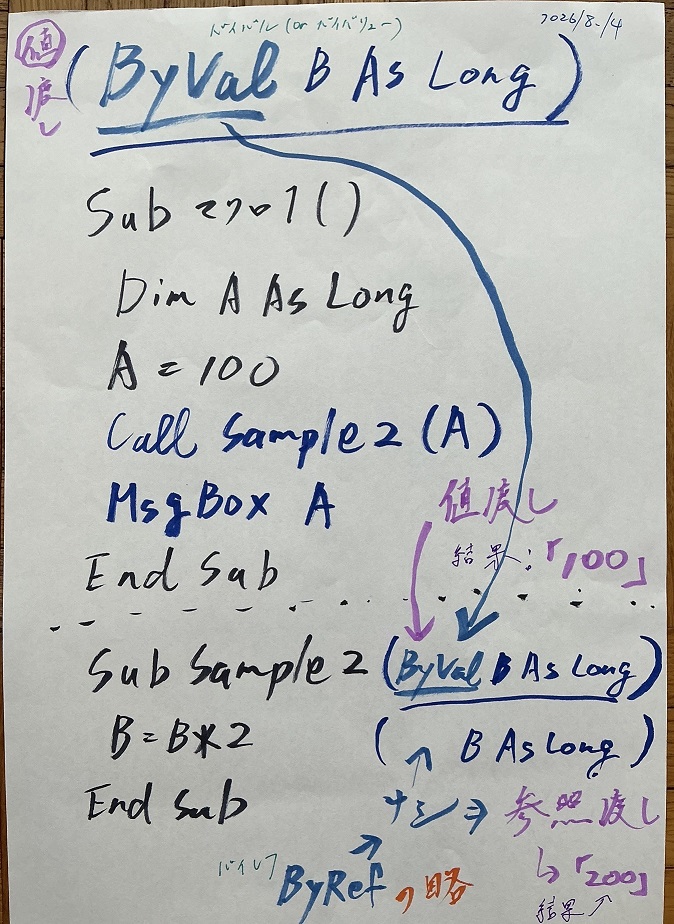 バイバル(or バイバリュー)
2026/8/4
値渡し
(ByVal B As Long)
Sub マクロ1()
Dim A As Long
A = 100
Call Sample2(A)
MsgBox A
値渡し
結果:「100」
End Sub
Sub Sample2(ByVal B As Long)
B = B * 2
( B As Long)
End Sub
ナシ⇒参照渡し
↳「200」
バイレフ
ByRefの略
結果↗